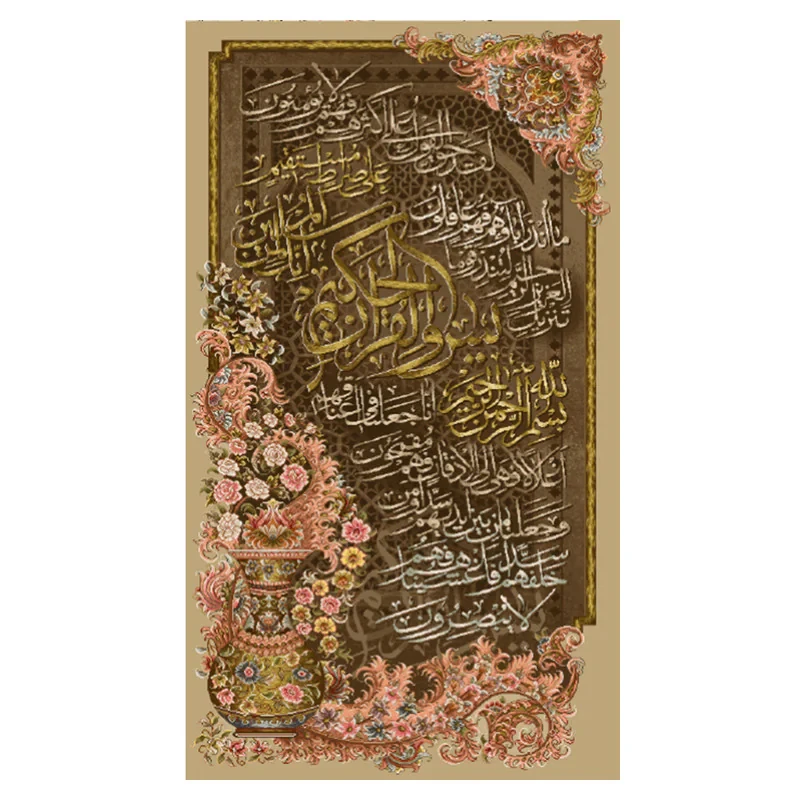 بسم الله الرحمن الرحيم
يس والقرآن الحكيم
إنك لمن المرسلين
على صراط مستقيم
تنزيل العزيز الرحيم لتنذر قوما
ما أنذر آباؤهم فهم غافلون
لقد حق القول على أكثرهم فهم لا يؤمنون
إنا جعلنا في أعناقهم
أغلالا فهي إلى الأذقان فهم مقمحون
وجعلنا من بين أيديهم سدا ومن
خلفهم سدا فأغشيناهم فهم
لا يبصرون